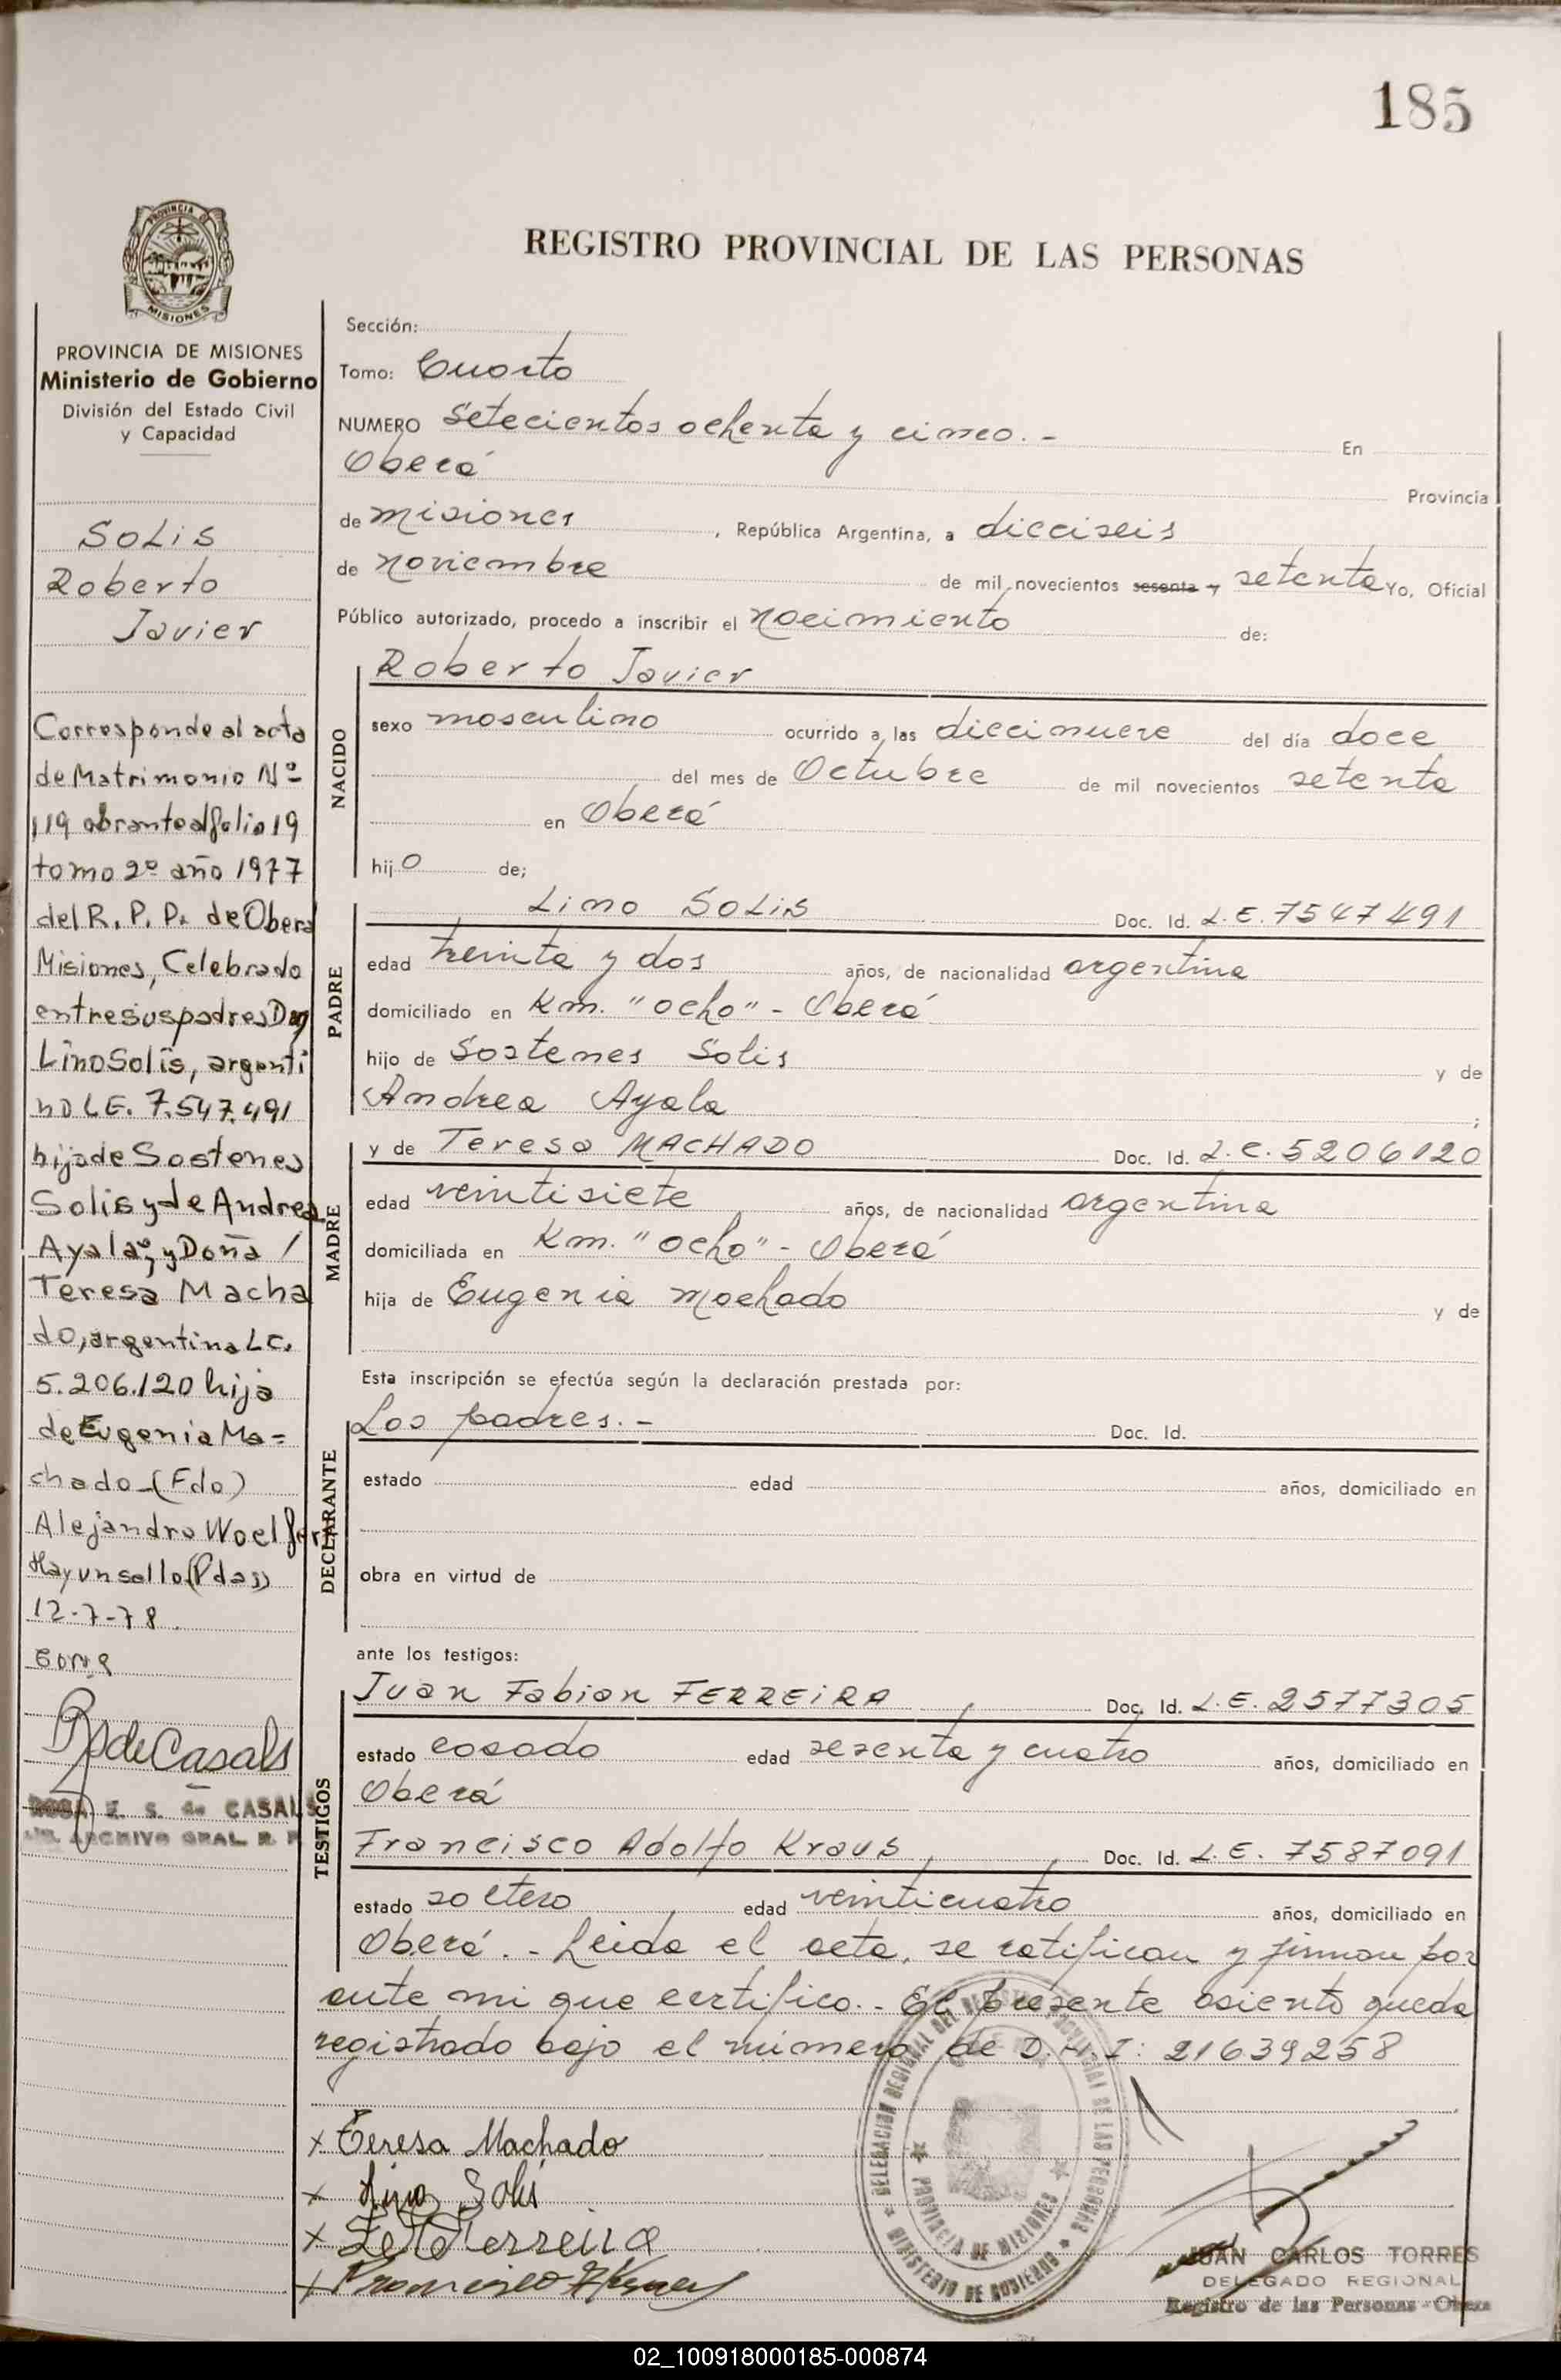 185
PROVINCIA DE
MISIONES
REGISTRO PROVINCIAL DE LAS PERSONAS
PROVINCIA DE MISIONES
Ministerio de Gobierno
División del Estado Civil
y Capacidad
SOLIS
Roberto
Javier
Corresponde al acta
de Matrimonio Nº
119 obrante al folio 19
tomo 2º año 1977
del R. P. P. de Obera
Misiones, Celebrado
entre sus padres Don
Lino Solis, argenti
no L.E. 7.547.491
hijo de Sostenes
Solis y de Andrea
Ayala y Doña /
Teresa Macha
do, argentina L.C.
5.206.120 hija
de Eugenia Ma=
chado-(Fdo)
Alejandro Woelfer
Hay un sello (Pdas)
12-7-78.
R. de Casals
ROSA Z. S. de CASALS
ARCHIVO GRAL. R. P.
Sección:
Tomo: Cuarto
NUMERO Setecientos ochenta y cinco.- En
Oberá Provincia
de Misiones, República Argentina, a dieciseis
de noviembre de mil novecientos sesenta y setenta Yo, Oficial
Público autorizado, procedo a inscribir el nacimiento de:
NACIDO
Roberto Javier
sexo masculino ocurrido a las diecinueve del día doce
del mes de Octubre de mil novecientos setenta
en Oberá
hijo de;
PADRE
Lino SOLIS Doc. Id. L.E. 7547491
edad treinta y dos años, de nacionalidad argentina
domiciliado en Km. "ocho" - Oberá
hijo de Sostenes Solis y de
Andrea Ayala ;
MADRE
y de Teresa MACHADO Doc. Id. L.C. 5206120
edad veintisiete años, de nacionalidad argentina
domiciliada en Km. "ocho" - Oberá
hija de Eugenia Machado y de
Esta inscripción se efectúa según la declaración prestada por:
DECLARANTE
Los padres.- Doc. Id.
estado edad años, domiciliado en
obra en virtud de
ante los testigos:
TESTIGOS
Juan Fabian FERREIRA Doc. Id. L.E. 2577305
estado casado edad sesenta y cuatro años, domiciliado en
Oberá
Francisco Adolfo Kraus Doc. Id. L.E. 7587091
estado soltero edad veinticuatro años, domiciliado en
Oberá.- Leida el acta, se ratifican y firman por
ante mi que certifico.- El presente asiento queda
registrado bajo el número de D.N.I: 21639258
x Teresa Machado
x Lino Solis
x Ferreira
x Francisco Kraus
DELEGACION REGIONAL DEL REGISTRO PROVINCIAL DE LAS PERSONAS
MINISTERIO DE GOBIERNO
PROVINCIA DE MISIONES
JUAN CARLOS TORRES
DELEGADO REGIONAL
Registro de las Personas - Obera
02_100918000185-000874